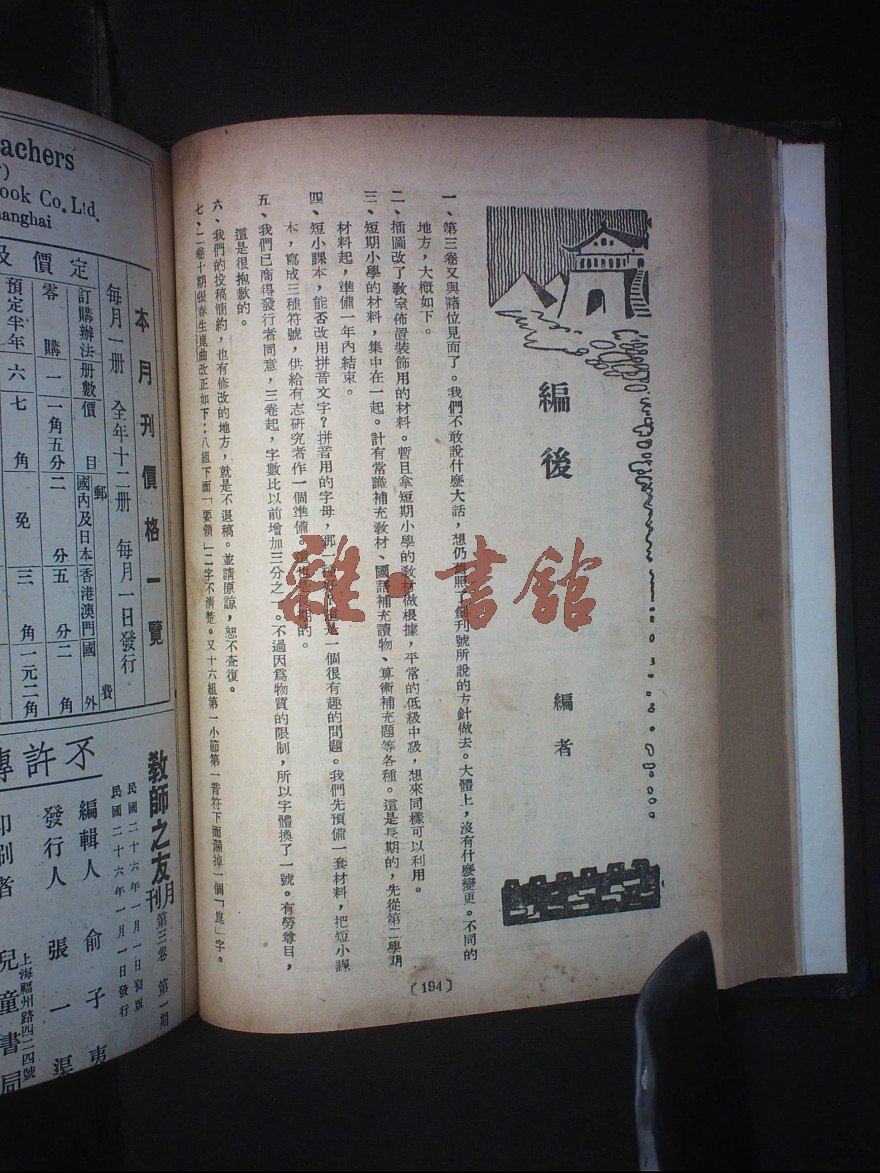 編後
編者
一、第三卷又與諸位見面了。我們不敢說什麼大話，想仍舊照創刊號所說的方針做去。大體上，沒有什麼變更。不同的
地方，大概如下。
二、插圖改了教室佈置裝飾用的材料。暫且拿短期小學的教材做根據，平常的低級中級，想來同樣可以利用。
三、短期小學的材料，集中在一起。計有常識補充教材、國語補充讀物、算術補充題等各種。這是長期的，先從第二學期
材料起，準備一年內結束。
四、短小課本，能否改用拼音文字？拼音用的字母，那一種好？這是一個很有趣的問題。我們先預備一套材料，把短小課
本，寫成三種符號，供給有志研究者作一個準備。這也是長期的。
五、我們已商得發行者同意，三卷起，字數比以前增加三分之一。不過因為物質的限制，所以字體換了一號。有勞尊目，
這是很抱歉的。
六、我們的投稿簡約，也有修改的地方，就是不退稿。並請原諒，恕不查復。
七、二卷十期張春生崑曲改正如下：八組下面「要領」二字不清楚。又十六組第一小節第一音符下面漏掉一個「崑」字。
〔194〕
雜·書館
achers
ook Co. Ltd.
anghai
本月刊價格一覽
每月一册 全年十二册 每月一日發行
定價及
訂購辦法 册數 價目 郵費
國內及日本 香港澳門 國外
零購 一 一角五分 二分 五分 二角
預定半年 六 七角 免 三角 一元二角
不許
教師之友月刊 第三卷 第一期
民國二十六年一月一日初版
民國二十六年一月一日發行
編輯人 俞子夷
發行人 張一渠
印刷者 兒童書局
上海福州路四二四號